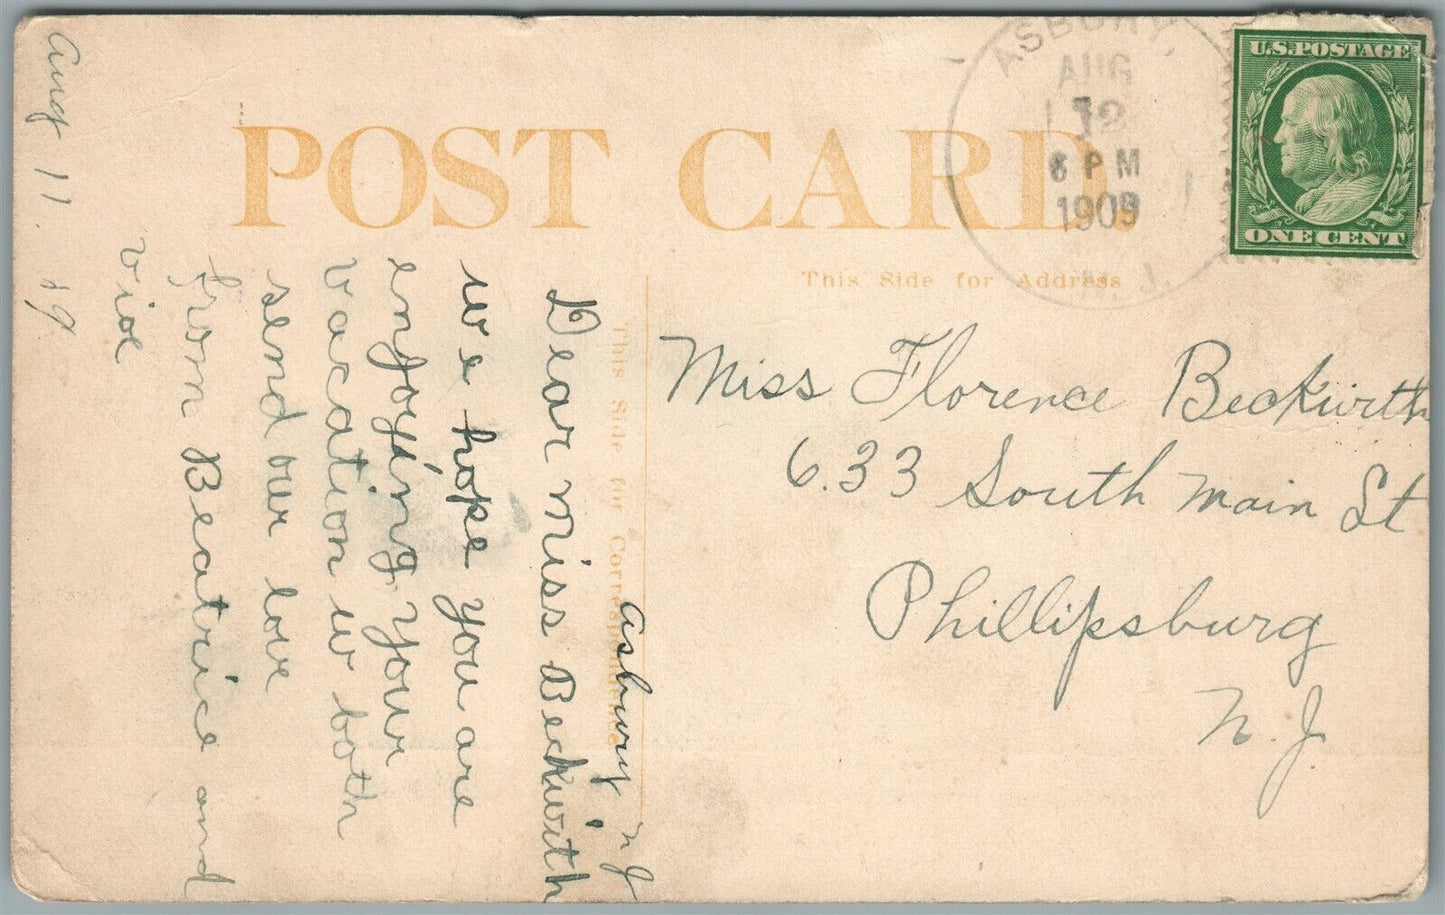 POST CARD.
This Side for Address
This Side for Correspondence
U.S. POSTAGE
ONE CENT
ASBURY,
AUG
12
6 PM
1909
N. J.
Miss Florence Beckwirth
633 South Main St
Phillipsburg
N. J.
Asbury N J
Dear Miss Beckwirth
we hope you are
enjoying your
vacation w both
send our love
from Beatrice and
Aug 11. 19